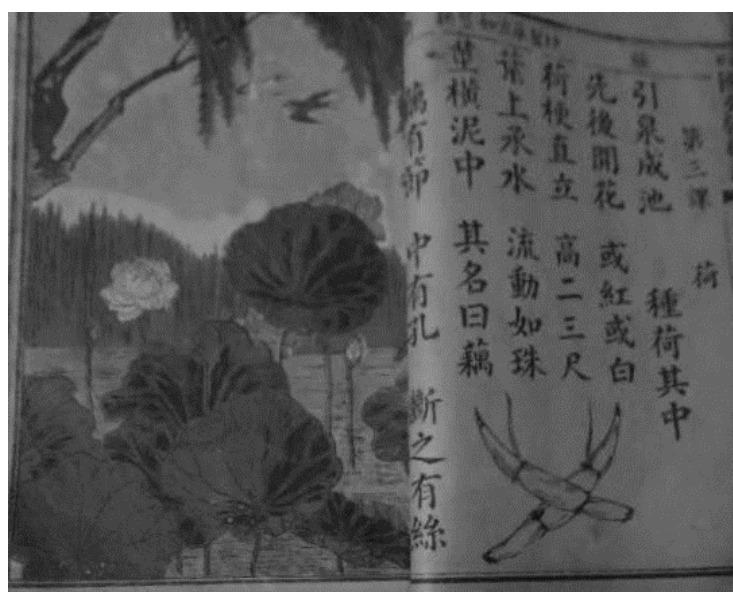 第三課 荷
引泉成池 種荷其中
先後開花 或紅或白
荷梗直立 高二三尺
葉上承水 流動如珠
莖橫泥中 其名曰藕
藕有節 中有孔 斷之有絲